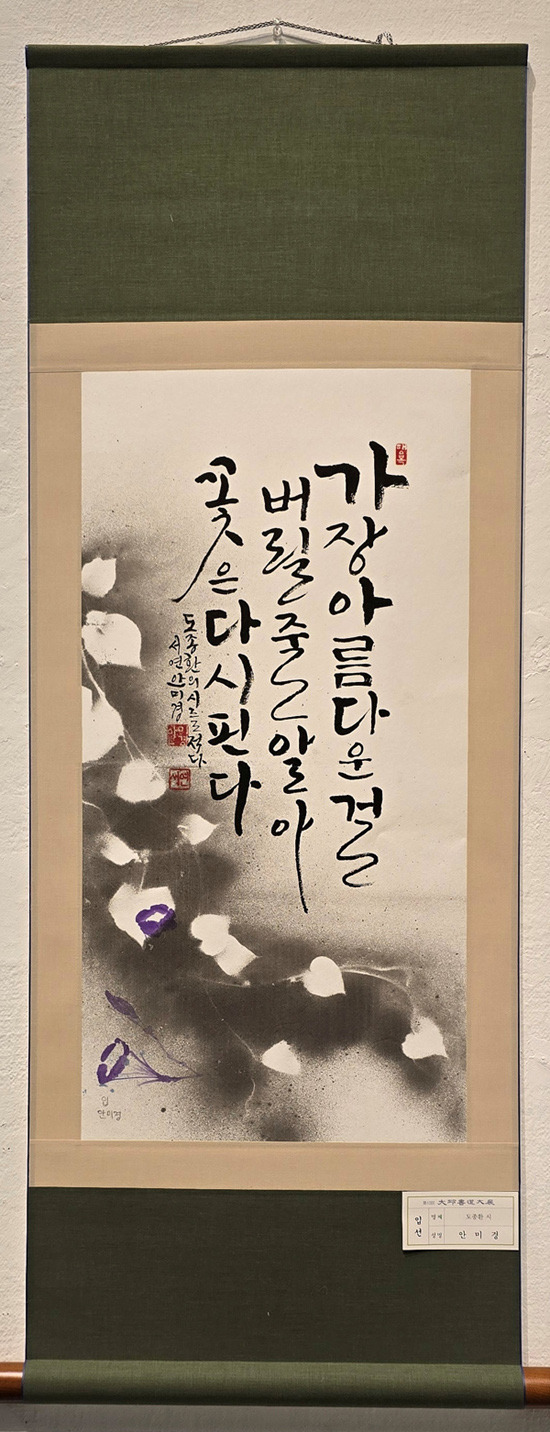 가장아름다운걸
버릴줄알아
꽃은다시핀다
도종환의시를적다
서연안미경
입
안미경
大邱書道大展
입선
명제 도종환 시
성명 안 미 경